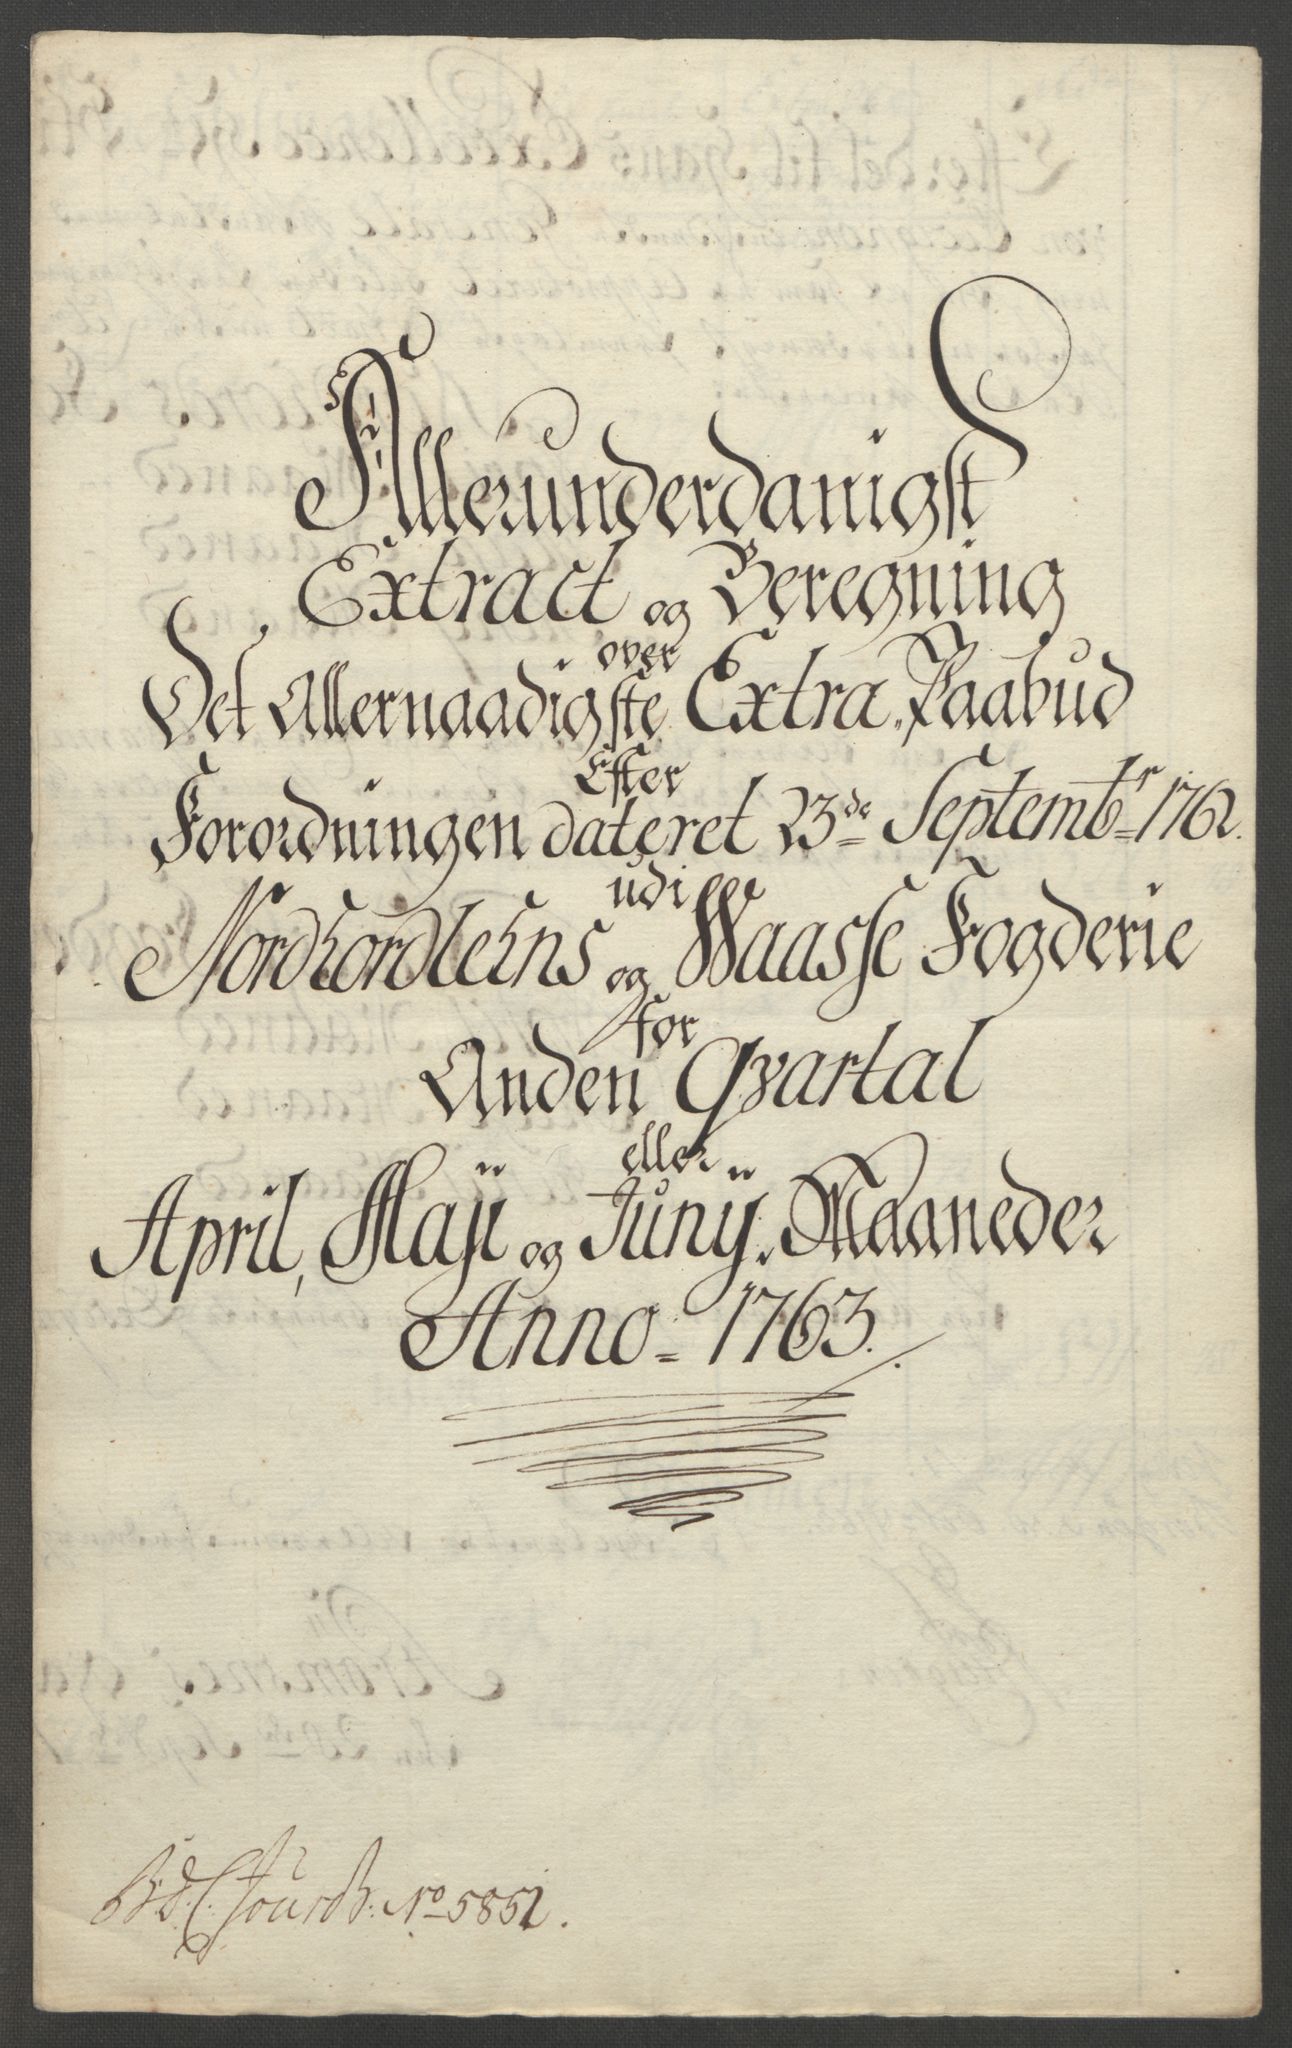 Allerunderdanigst
Extract og Beregning
over
Det Allernaadigste Extra Paabud
Efter
Forordningen dateret 23de Septembr 1762.
udi
Nordhordlehns og Waasse Fogderie
for
Anden Qvartal
eller
April, Maji og Junij Maaneder
Anno 1763.
No 5851.